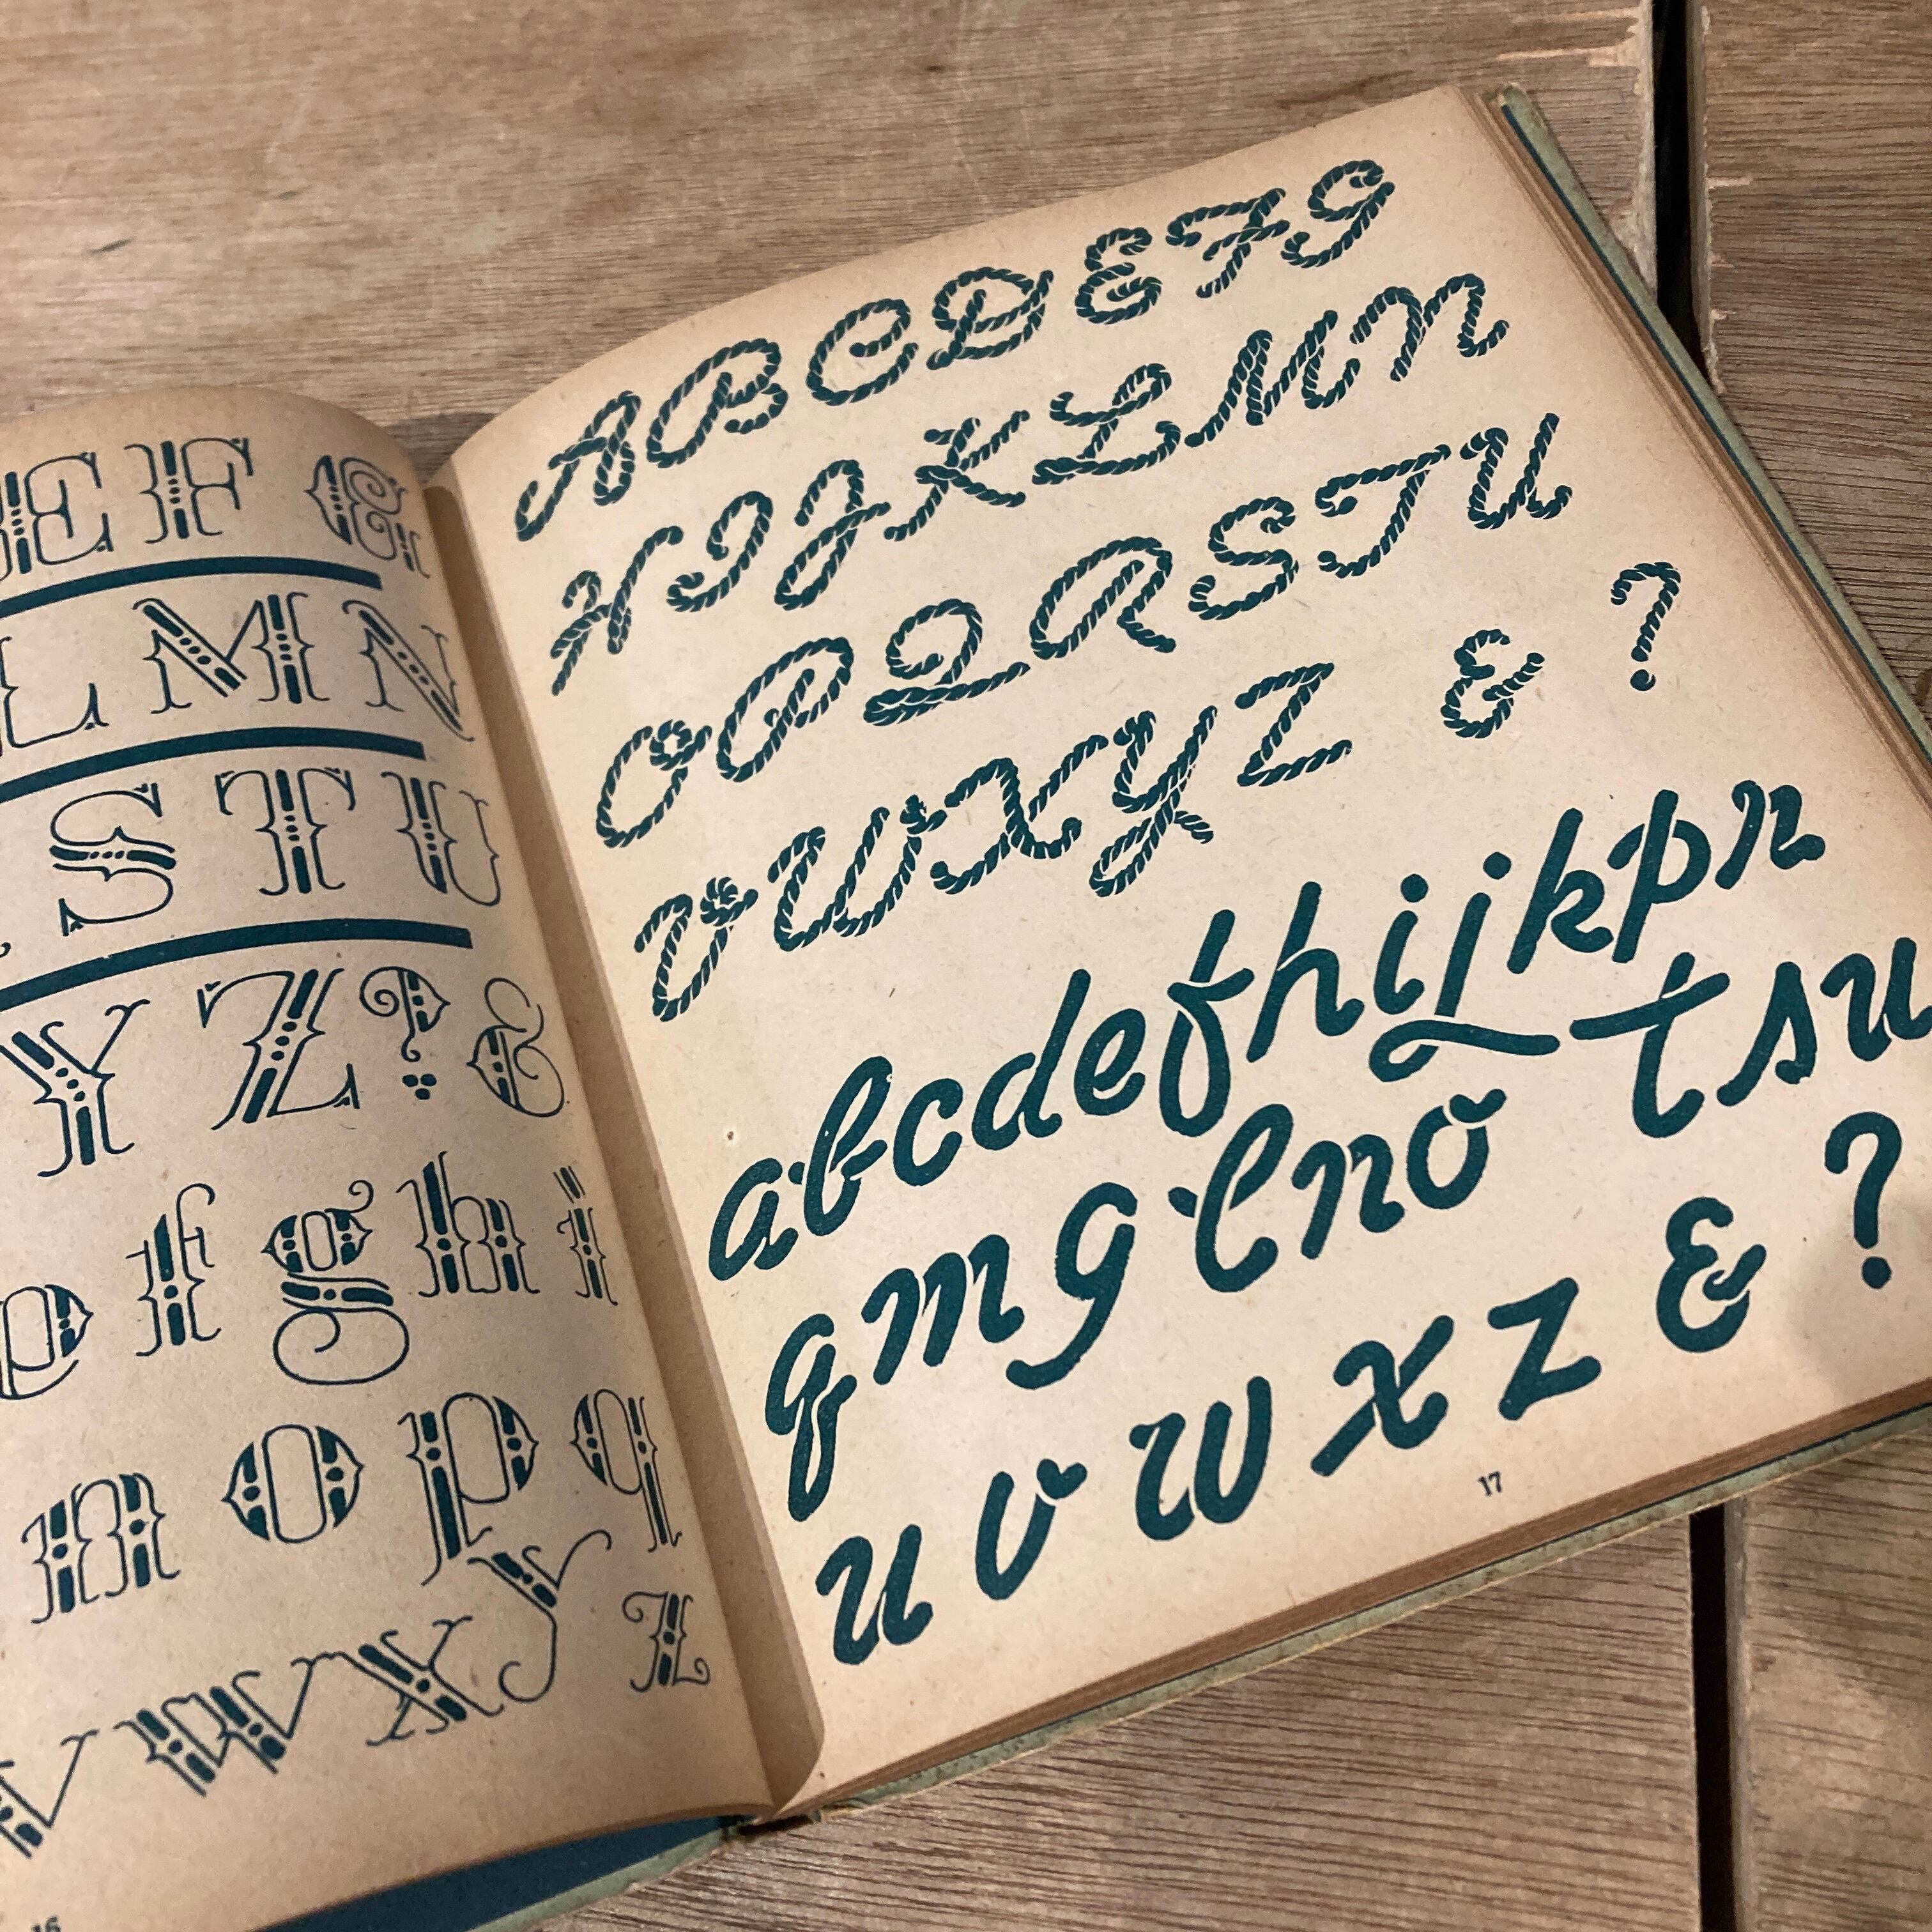 E F G
L M N
S T U
Y Z ? &
e f g h i
n o p q
v w x y z
16
A B C D E F G
H I J K L M N
O P Q R S T U
V W X Y Z & ?
a b c d e f h i j k p r
q m g l n o t s u
u v w x z & ?
17